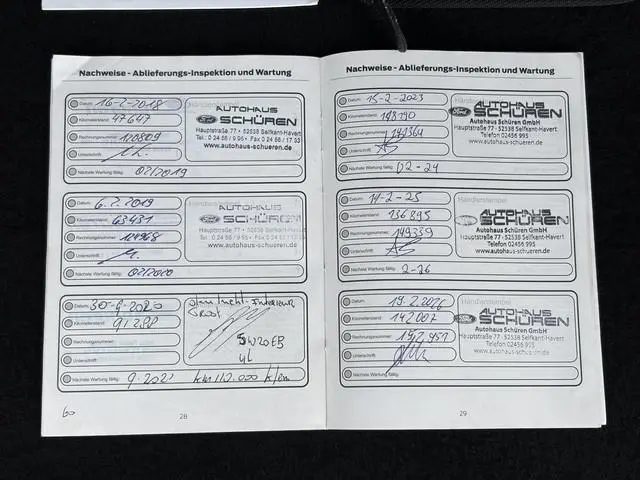 Nachweise - Ablieferungs-Inspektion und Wartung
Datum: 16-2-2018
Kilometerstand: 47647
Rechnungsnummer: 120809
Unterschrift:
Nächste Wartung fällig: 02/2019
AUTOHAUS
Ford SCHÜREN
Hauptstraße 77 • 52538 Selfkant-Havert
Tel.: 0 24 56 / 9 95 • Fax 0 24 56 / 17 33
www.autohaus-schueren.de
Datum: 6.2.2019
Kilometerstand: 63431
Rechnungsnummer: 124968
Unterschrift:
Nächste Wartung fällig: 02/2020
AUTOHAUS
Ford SCHÜREN
Hauptstraße 77 • 52538 Selfkant-Havert
www.autohaus-schueren.de
Datum: 30-9-2020
Kilometerstand: 91288
Rechnungsnummer:
Unterschrift:
Nächste Wartung fällig: 9-2021 km 112.000 k/m
28
60
Nachweise - Ablieferungs-Inspektion und Wartung
Datum: 15-2-2023
Kilometerstand:
Rechnungsnummer: 141364
Unterschrift:
Nächste Wartung fällig: 02-24
Händlerstempel
AUTOHAUS
Ford SCHÜREN
Autohaus Schüren GmbH
Hauptstraße 77 · 52538 Selfkant-Havert
Telefon 02456 995
www.autohaus-schueren.de
Datum: 14-2-25
Kilometerstand: 136895
Rechnungsnummer: 149339
Unterschrift:
Nächste Wartung fällig: 2-26
Händlerstempel
AUTOHAUS
SCHÜREN
Autohaus Schüren GmbH
Hauptstraße 77 · 52538 Selfkant-Havert
Telefon 02456 995
www.autohaus-schueren.de
Datum: 19.2.2026
Kilometerstand: 142007
Rechnungsnummer: 152957
Unterschrift:
Nächste Wartung fällig:
Händlerstempel
AUTOHAUS
Ford SCHÜREN
Autohaus Schüren GmbH
Hauptstraße 77 · 52538 Selfkant-Havert
Telefon 02456 995
www.autohaus-schueren.de
29